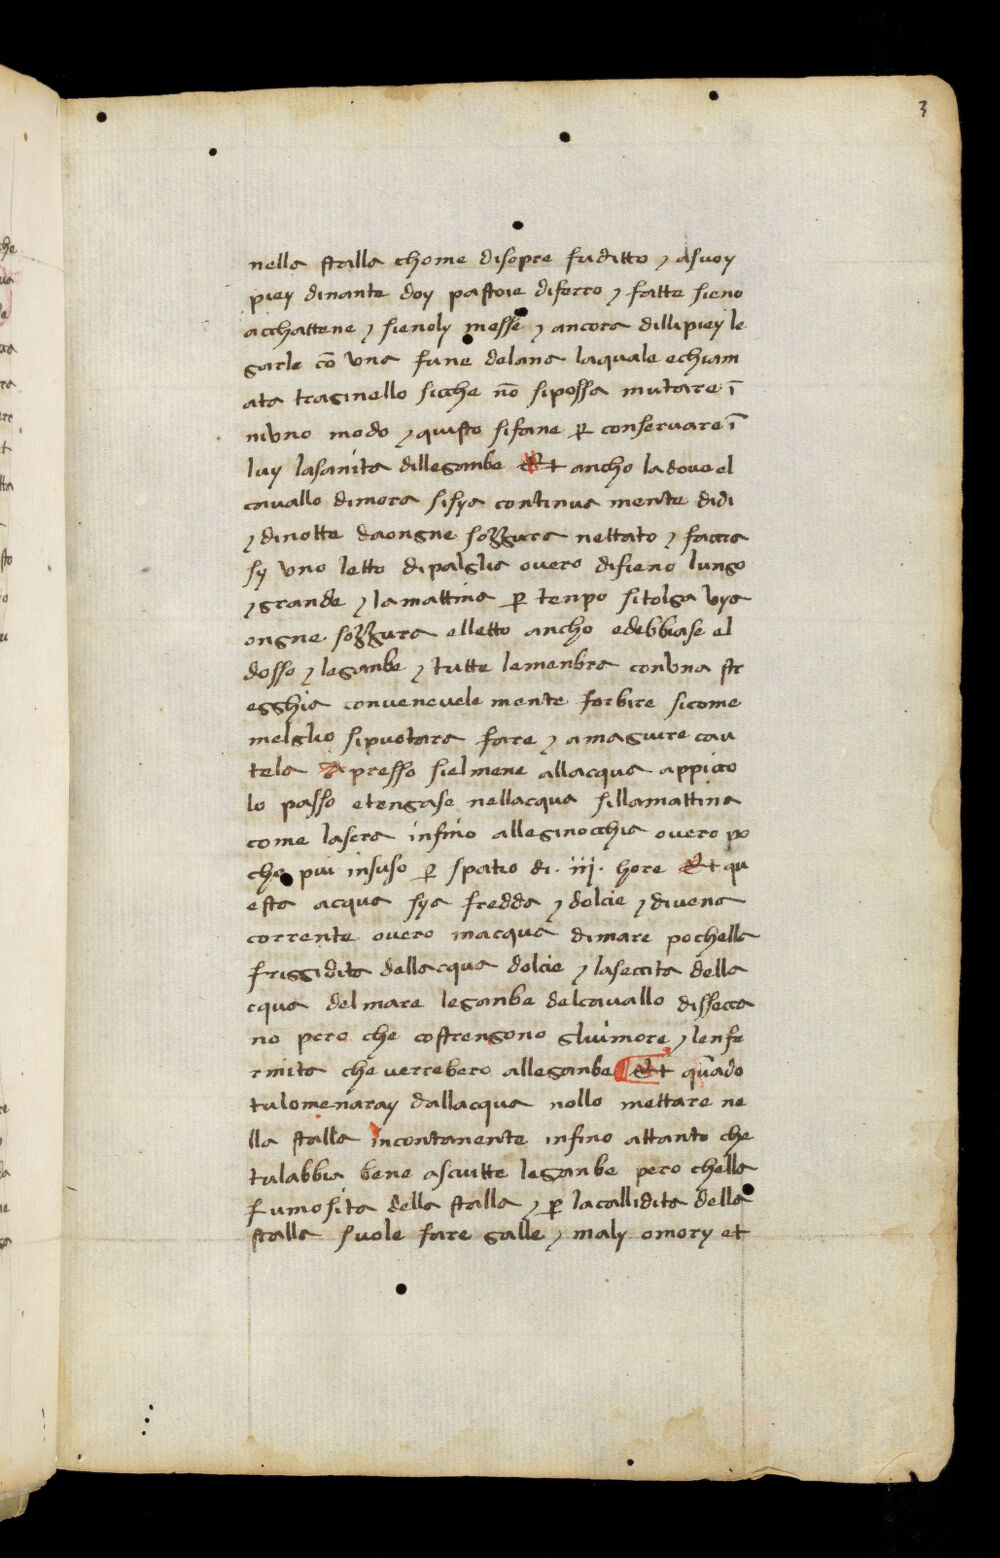 3
nella stalla chome disopre fuditto ⁊ asuoy
piey dinante doy pastoie diferro ⁊ fatte sieno
acchattene ⁊ sienoly messe ⁊ ancora dillipiey le
garle cō vna fune delana laquale echiam
ata traginello sicche nō sipossa mutare ī
nivno modo ⁊ quisto sifane ꝑ conseruare ī
luy lasanita dilleganbe Et ancho ladoue el
cauallo dimora sisya continua mente didi
⁊ dinotte daongne sozzura nettato ⁊ faccia
sy vno letto dipalglia ouero difieno lungo
⁊ grande ⁊ lamattina ꝑ tenpo sitolga vya
ongne sozzura elletto ancho edebbiase el
dosso ⁊ leganbe ⁊ tutte lemenbra convna str
egghia conueneuele mente forbire sicome
melglio sipuotara fare ⁊ amaguire cau
tela Apresso sielmene allacqua appicco
lo passo etengase nellacqua sillamattina
come lasera infino alleginocchia ouero po
cho piu insuso ꝑ spatio di .iij. hore Et qu
esta acqua sya fredda ⁊ dolcie ⁊ diuena
corrente ouero inacqua dimare pochella
friggidita dellacqua dolcie ⁊ laseccita della
cqua delmare leganbe delcauallo dissecca
no pero che costrengono gliuimore ⁊ lenfe
rmita che uerrebero alleganbe Et quādo
tulomenaray dallacqua nollo mettare ne
lla stalla incontanente infino attanto che
tulabbia bene asciutte leganbe pero chella
fumosita della stalla ⁊ ꝑ lacallidita della
stalla suole fare galle ⁊ maly omory et